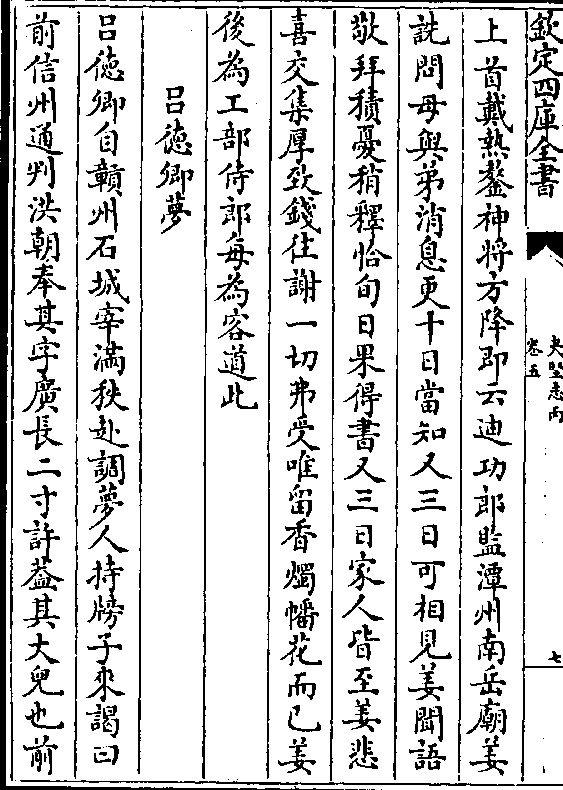 欽定四庫全書
夷堅志丙
卷五
七
上首戴熱鏊神將方降即云迪功郎監潭州南岳廟姜
詵問母與弟消息更十日當知又三日可相見姜聞語
敬拜積憂稍釋恰旬日果得書又三日家人皆至姜悲
喜交集厚致錢往謝一切弗受唯留香燭幡花而已姜
後為工部侍郎每為客道此
呂徳卿夢
呂徳卿自贛州石城宰滿秩赴調夢人持牓子來謁曰
前信州通判洪朝奉其字廣長二寸許葢其大兒也前